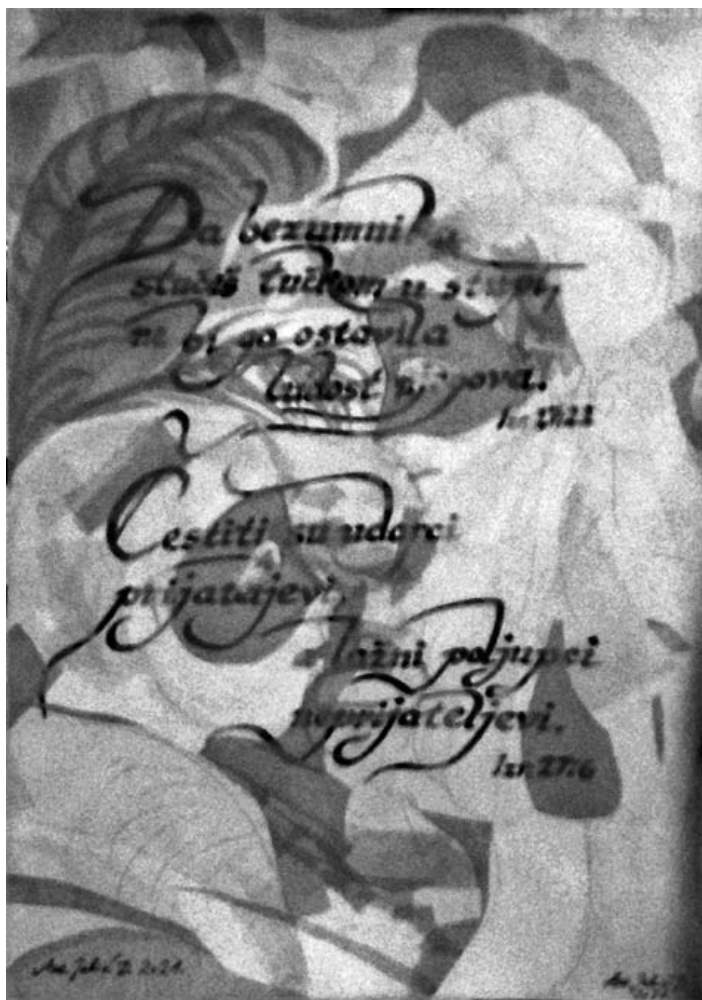 Da bezumnika
stučeš tučkom u stupi,
ne bi ga ostavila
ludost njegova.
Izr 27:22
Čestiti su udarci
prijateljevi,
a lažni poljupci
neprijateljevi.
Izr 27:6
2021.